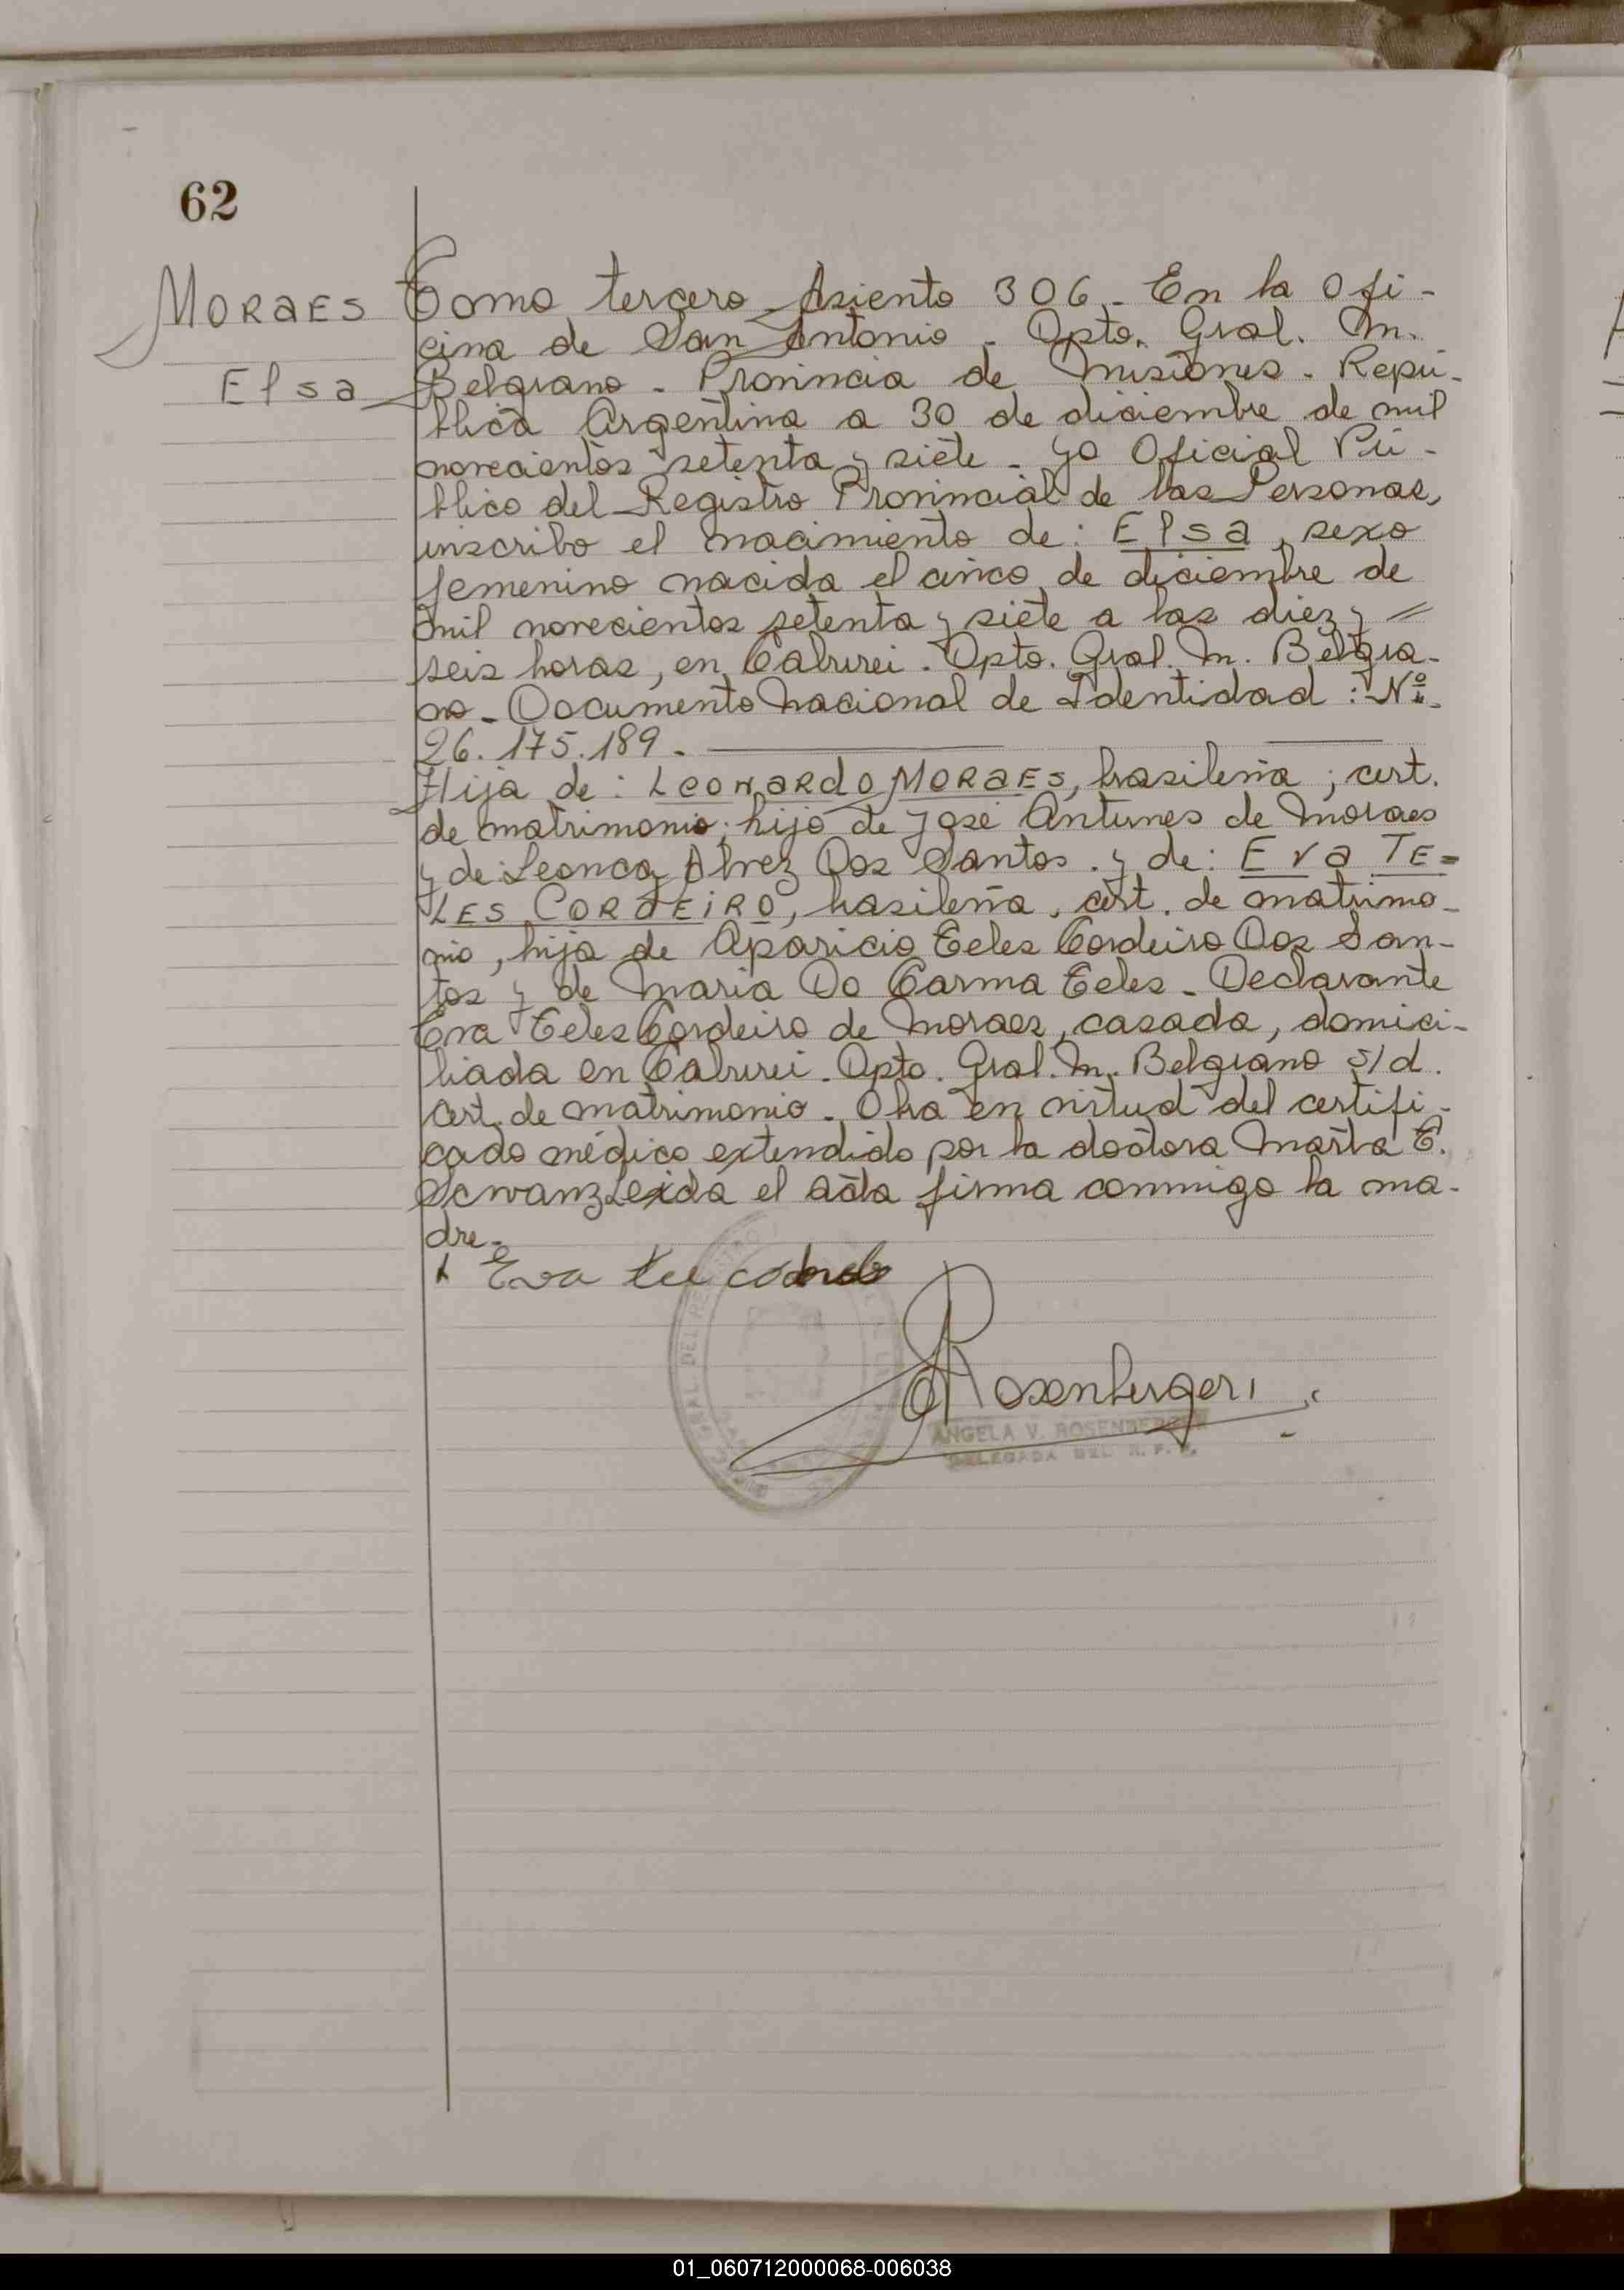 62
MORAES
Elsa
Tomo tercero - Asiento 306 - En la Ofi-
cina de San Antonio - Dpto. Gral. M.
Belgrano - Provincia de Misiones - Repú-
blica Argentina a 30 de diciembre de mil
novecientos setenta y siete - yo Oficial Pú-
blico del Registro Provincial de las Personas,
inscribo el nacimiento de: Elsa, sexo
femenino nacida el cinco de diciembre de
mil novecientos setenta y siete a las diez y =
seis horas, en Cabureí - Dpto. Gral. M. Belgra-
no - Documento Nacional de Identidad: Nº
26.175.189. -
Hija de: LEONARDO MORAES, brasileña; cert.
de matrimonio; hijo de José Antunes de Moraes
y de Leonca Alvez Dos Santos. y de: Eva TE=
LES CORDEIRO, brasileña, cert. de matrimo-
nio, hija de Aparicio Teles Cordeiro Dos San-
tos y de Maria Do Carma Teles - Declarante
Eva Teles Cordeiro de Moraes, casada, domici-
liada en Cabureí - Dpto. Gral. M. Belgrano s/d.
cert. de matrimonio - Obra en virtud del certifi-
cado médico extendido por la doctora Marta E.
Scwanz Leída el acta firma conmigo la ma-
dre.
Eva
Rosenberger
ANGELA V. ROSENBERGER
DELEGADA DEL R. P. P.
01_060712000068-006038